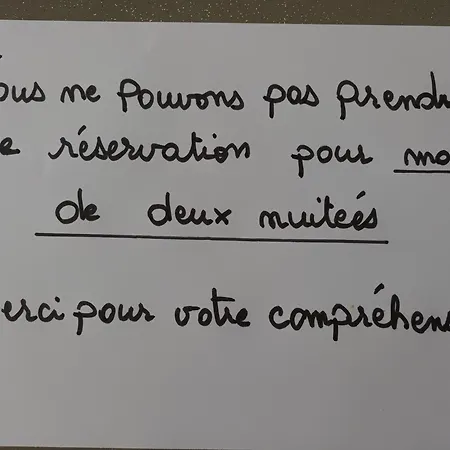 ous ne pouvons pas prendr
e réservation pour mo
de deux nuiteés
erci pour votre compréhens